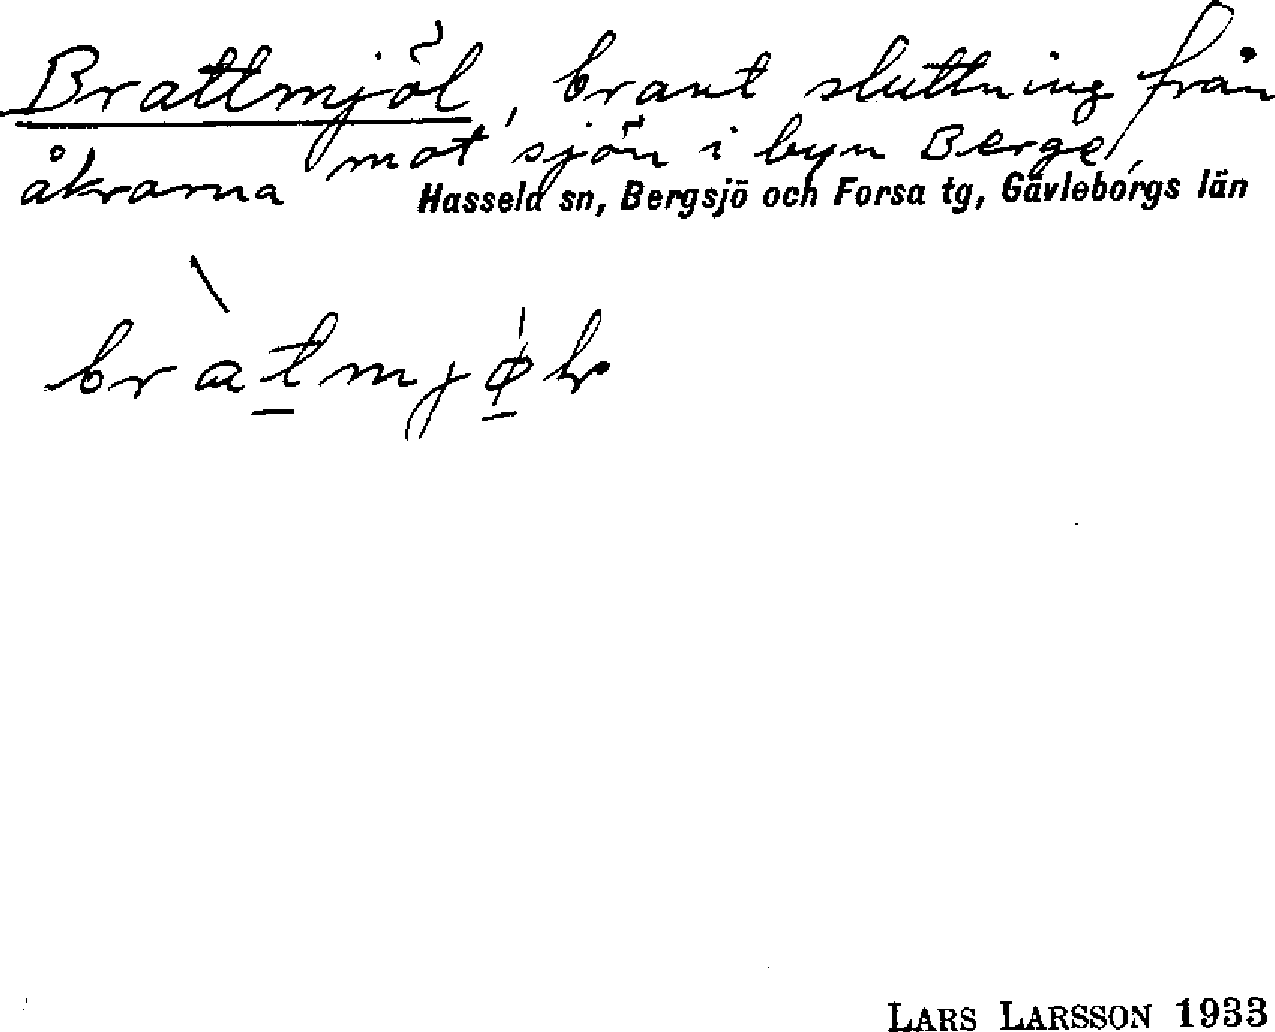 Brattmjöl, brant sluttning från
åkrarna mot sjön i byn Berge,
Hassela sn, Bergsjö och Forsa tg, Gävleborgs län
LARS LARSSON 1933